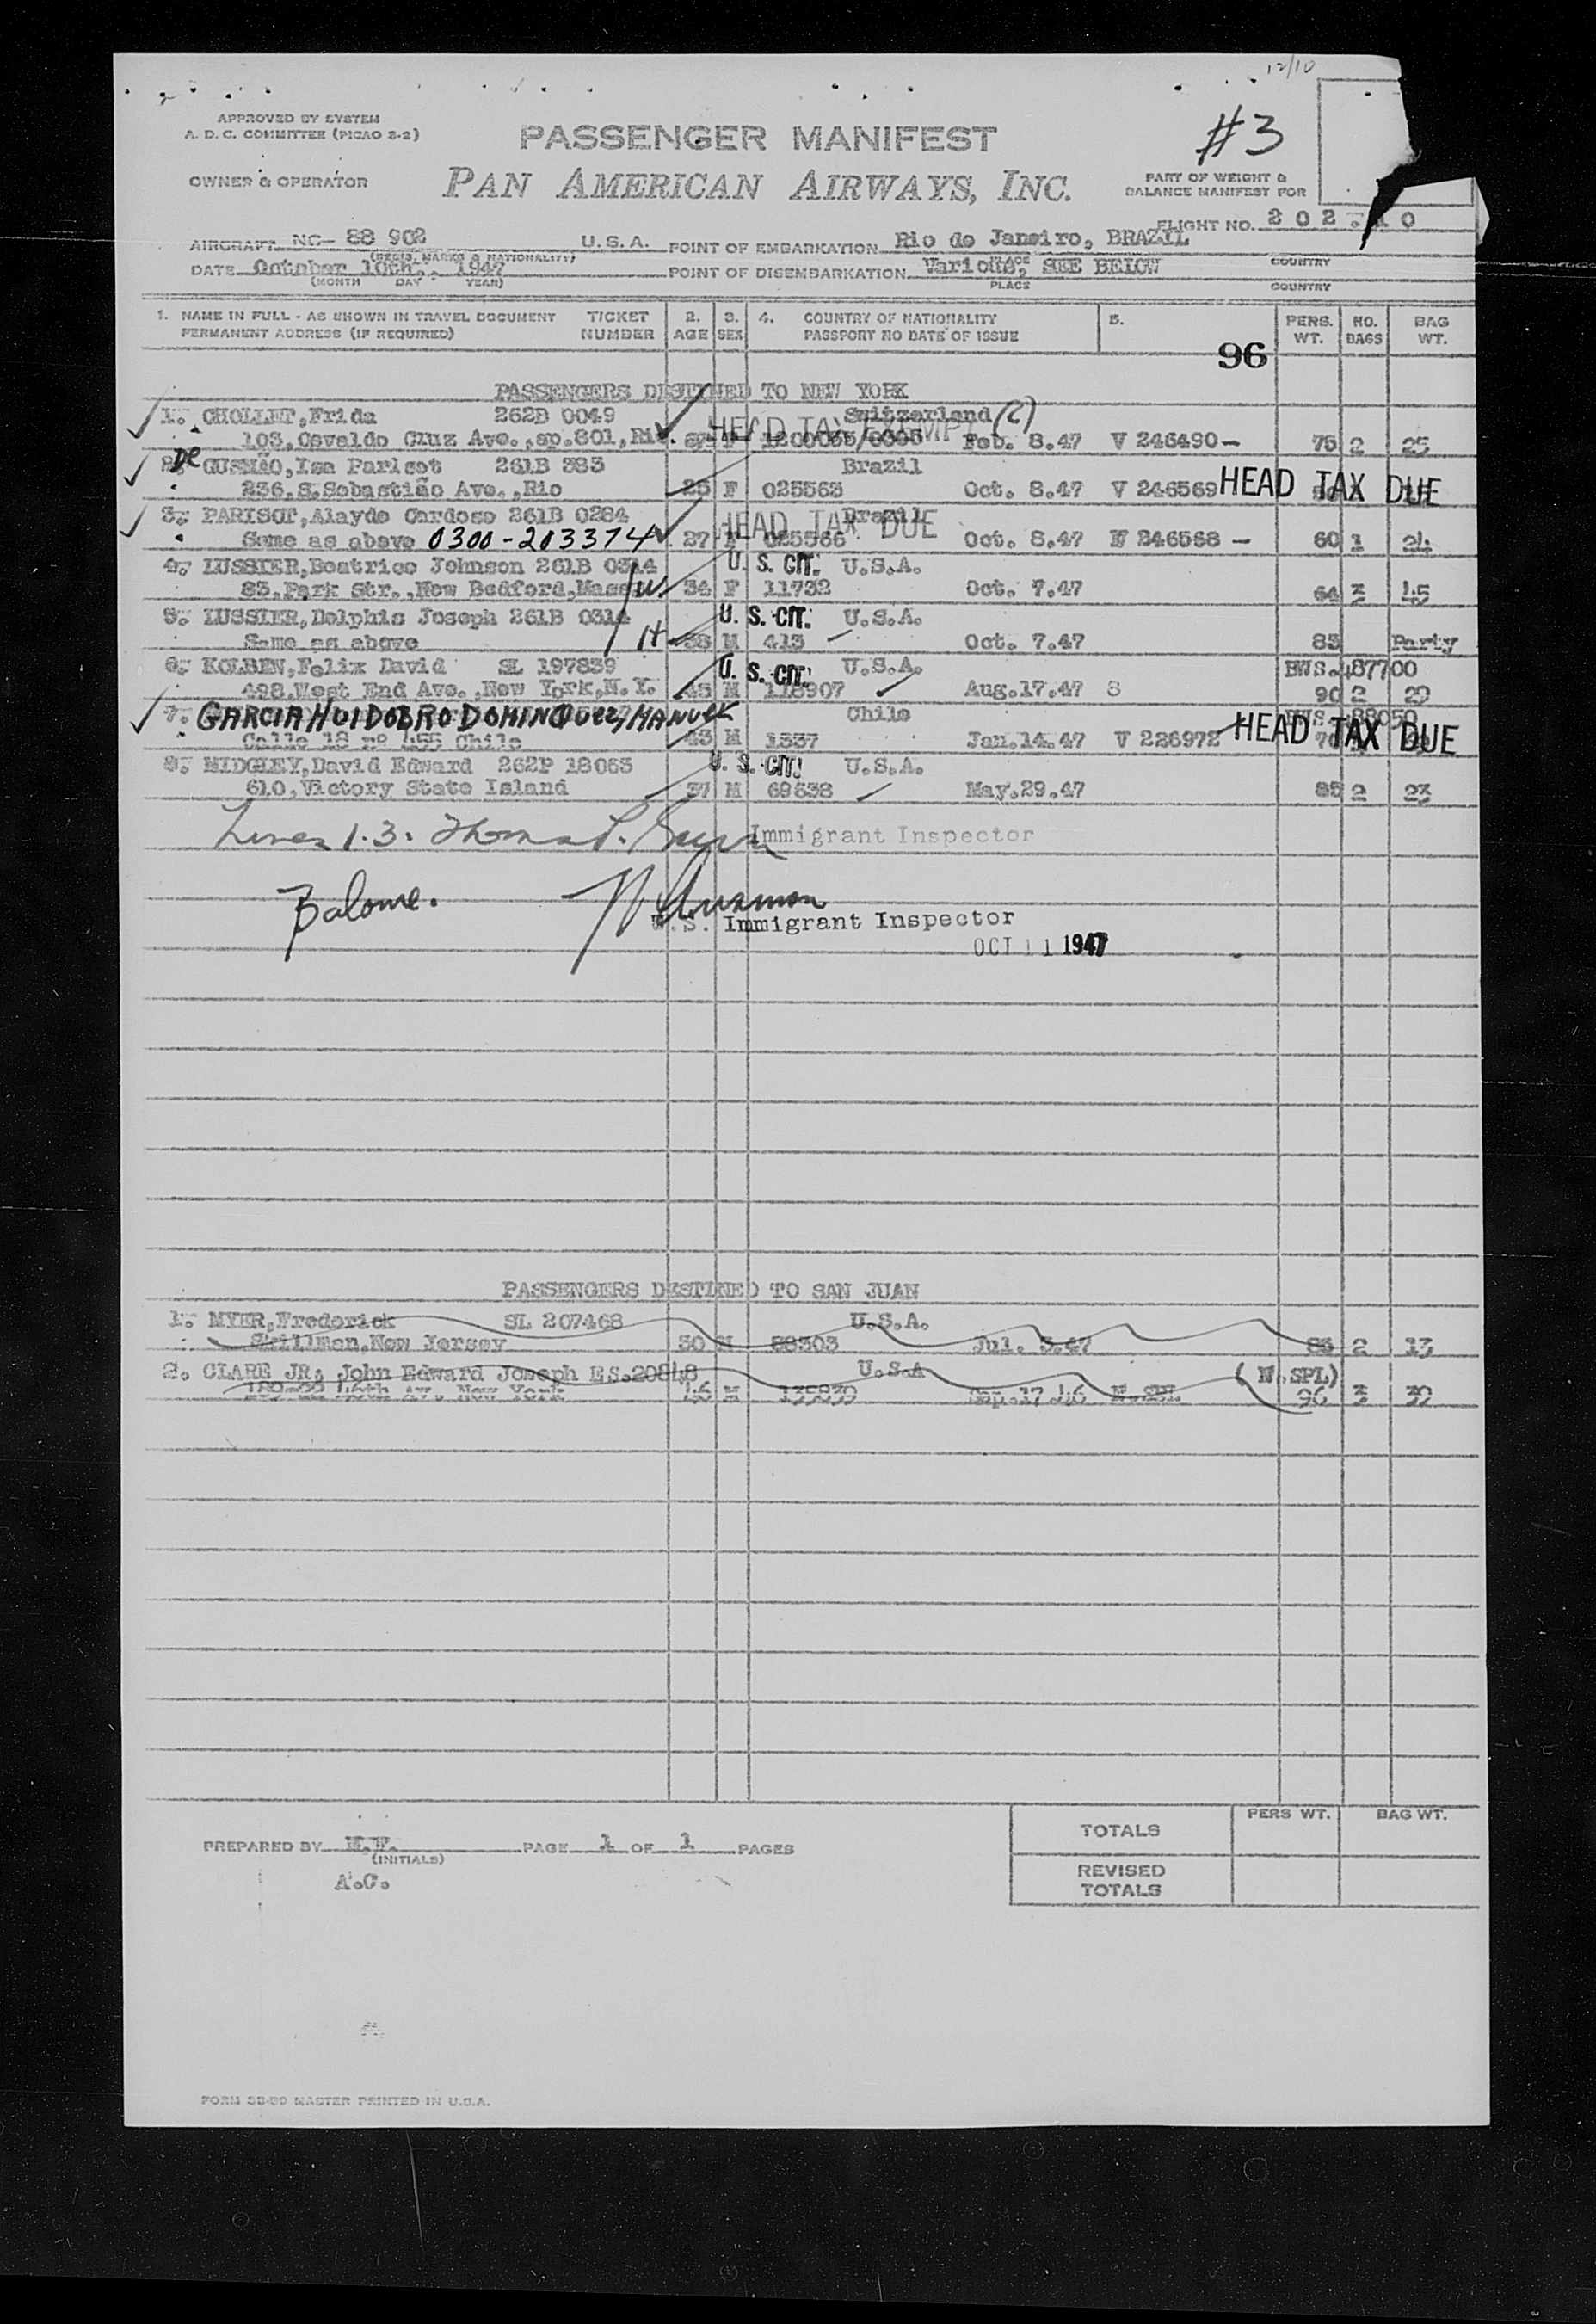 12/10
APPROVED BY SYSTEM
A. D. C. COMMITTEE (PICAO 2-2)
PASSENGER MANIFEST
#3
OWNER & OPERATOR
PAN AMERICAN AIRWAYS, INC.
PART OF WEIGHT &
BALANCE MANIFEST FOR
FLIGHT NO. 202. 10
AIRCRAFT NC- 88 902 U.S.A. POINT OF EMBARKATION Rio de Janeiro, BRAZIL
(REGIS. MARKS & NATIONALITY) PLACE COUNTRY
DATE October 10th., 1947 POINT OF DISEMBARKATION Various, SEE BELOW
(MONTH DAY YEAR) PLACE COUNTRY
1. NAME IN FULL - AS SHOWN IN TRAVEL DOCUMENT TICKET 2. 3. 4. COUNTRY OF NATIONALITY 5. PERS. NO. BAG
PERMANENT ADDRESS (IF REQUIRED) NUMBER AGE SEX PASSPORT NO DATE OF ISSUE WT. BAGS WT.
96
PASSENGERS DESTINED TO NEW YORK
1. CHOLLET,Frida 262B 0049 Switzerland (C)
HEAD TAX EXEMPT
103,Osvaldo Cruz Ave.,ap.801,Rio. F Feb. 8.47 V 246490 - 75 2 25
2. De GUSMÃO,Isa Parisot 261B 383 Brazil
236,S.Sebastião Ave.,Rio 25 F 025563 Oct. 8.47 V 246569 HEAD TAX DUE
3. PARISOT,Alayde Cardoso 261B 0284 Brazil
HEAD TAX DUE
Same as above 0300-203374 27 F 025566 Oct. 8.47 V 246568 - 60 1 24
4. LUSSIER,Beatrice Johnson 261B 0314 U. S. CIT. U.S.A.
83,Park Str.,New Bedford,Mass W 34 F 11732 Oct. 7.47 64 3 45
5. LUSSIER,Delphis Joseph 261B 0314 U. S. CIT. U.S.A.
Same as above H 38 M 413 Oct. 7.47 83 Party
6. KOLBEN,Felix David SL 197839 U. S. CIT. U.S.A. BWS.487700
498,West End Ave.,New York,N.Y. 45 M 118907 Aug.17.47 S 90 2 29
7. GARCIA HUIDOBRO DOMINQUEZ, MANUEL Chile BWS.488050
Calle 18 nº 455 Chile 43 M 1337 Jan.14.47 V 226972 HEAD TAX DUE
8. MIDGLEY,David Edward 262P 18063 U. S. CIT. U.S.A.
610,Victory State Island 37 M 69638 May.29.47 85 2 23
Lines 1.3. Thomas P. Immigrant Inspector
Balance.
U.S. Immigrant Inspector
OCT 11 1947
PASSENGERS DESTINED TO SAN JUAN
1. MYER,Frederick SL 207468 U.S.A.
Skillman,New Jersey 50 M 88303 Jul. 3.47 83 2 13
2. CLARE JR, John Edward Joseph E.S.20848 U.S.A (N.SPL)
46th Av. New York 46 M 135839 Sep.17 46 N.SPL 96 3 39
PREPARED BY PAGE 1 OF 1 PAGES
(INITIALS)
A.C.
PERS WT. BAG WT.
TOTALS
REVISED
TOTALS
FORM 33-50 MASTER PRINTED IN U.S.A.